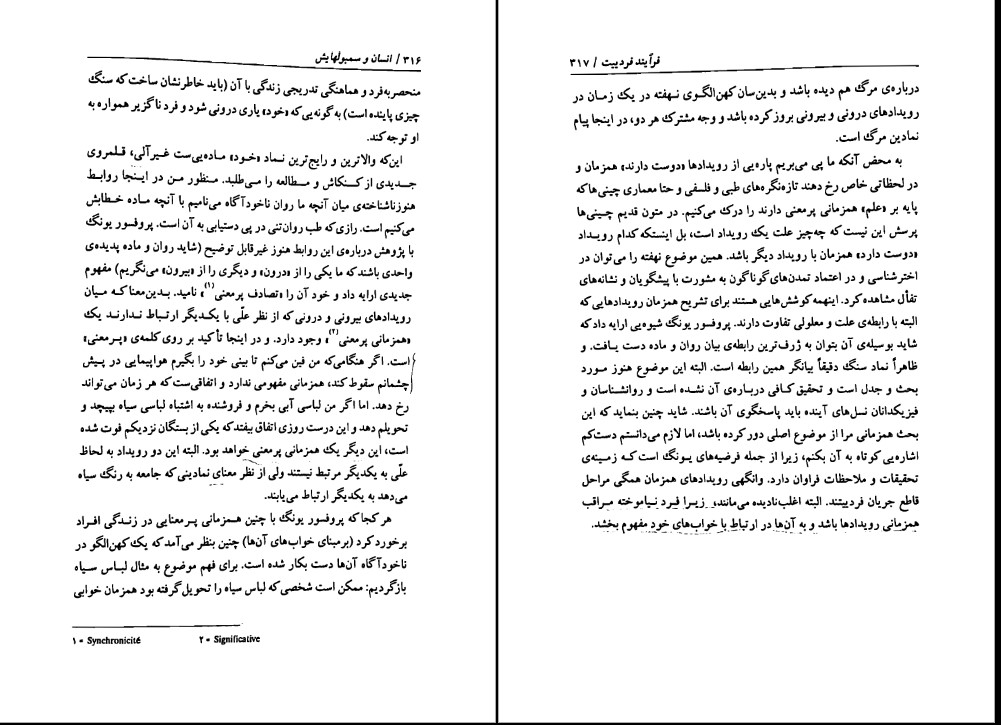 ۳۱۶ / انسان و سمبولهایش
منحصربه‌فرد و هماهنگی تدریجی زندگی با آن (باید خاطرنشان ساخت که سنگ
چیزی پاینده است) به گونه‌یی که «خود» یاری درونی شود و فرد ناگزیر همواره به
او توجه کند.
این‌که والاترین و رایج‌ترین نماد «خود» ماده‌یی‌ست غیرآلی، قلمروی
جدیدی از کنکاش و مطالعه را می‌طلبد. منظور من در اینجا روابط
هنوزناشناخته‌ی میان آنچه ما روان ناخودآگاه می‌نامیم با آنچه ماده خطابش
می‌کنیم است. رازی که طب روان‌تنی در پی دستیابی به آن است. پروفسور یونگ
با پژوهش درباره‌ی این روابط هنوز غیرقابل توضیح (شاید روان و ماده پدیده‌ی
واحدی باشند که ما یکی را از «درون» و دیگری را از «بیرون» می‌نگریم) مفهوم
جدیدی ارایه داد و خود آن را «تصادف پرمعنی(۱)» نامید. بدین‌معنا که میان
رویدادهای بیرونی و درونی که از نظر علّی با یکدیگر ارتباط ندارند یک
«همزمانی پرمعنی(۲)» وجود دارد. و در اینجا تأکید بر روی کلمه‌ی «پرمعنی»
است. اگر هنگامی‌که من فین می‌کنم تا بینی خود را بگیرم هواپیمایی در پیش
چشمانم سقوط کند، همزمانی مفهومی ندارد و اتفاقی‌ست که هر زمان می‌تواند
رخ دهد. اما اگر من لباسی آبی بخرم و فروشنده به اشتباه لباسی سیاه بپیچد و
تحویلم دهد و این درست روزی اتفاق بیفتد که یکی از بستگان نزدیکم فوت شده
است، این دیگر یک همزمانی پرمعنی خواهد بود. البته این دو رویداد به لحاظ
علّی به یکدیگر مرتبط نیستند ولی از نظر معنای نمادینی که جامعه به رنگ سیاه
می‌دهد به یکدیگر ارتباط می‌یابند.
هر کجا که پروفسور یونگ با چنین همزمانی پرمعنایی در زندگی افراد
برخورد کرد (برمبنای خواب‌های آن‌ها) چنین بنظر می‌آمد که یک کهن‌الگو در
ناخودآگاه آن‌ها دست بکار شده است. برای فهم موضوع به مثال لباس سیاه
بازگردیم: ممکن است شخصی که لباس سیاه را تحویل گرفته بود همزمان خوابی
۱ - Synchronicité
۲ - Significative
فرآیند فردییت / ۳۱۷
درباره‌ی مرگ هم دیده باشد و بدین‌سان کهن‌الگوی نهفته در یک زمان در
رویدادهای درونی و بیرونی بروز کرده باشد و وجه مشترک هر دو، در اینجا پیام
نمادین مرگ است.
به محض آنکه ما پی می‌بریم پاره‌یی از رویدادها «دوست دارند» همزمان و
در لحظاتی خاص رخ دهند تازه‌نگره‌های طبی و فلسفی و حتا معماری چینی‌ها که
پایه بر «علم» همزمانی پرمعنی دارند را درک می‌کنیم. در متون قدیم چینی‌ها
پرسش این نیست که چه‌چیز علت یک رویداد است، بل اینستکه کدام رویداد
«دوست دارد» همزمان با رویداد دیگر باشد. همین موضوع نهفته را می‌توان در
اخترشناسی و در اعتماد تمدن‌های گوناگون به مشورت با پیشگویان و نشانه‌های
تفأل مشاهده کرد. اینهمه کوشش‌هایی هستند برای تشریح همزمان رویدادهایی که
البته با رابطه‌ی علت و معلولی تفاوت دارند. پروفسور یونگ شیوه‌یی ارایه داد که
شاید بوسیله‌ی آن بتوان به ژرف‌ترین رابطه‌ی بیان روان و ماده دست یافت. و
ظاهراً نماد سنگ دقیقاً بیانگر همین رابطه است. البته این موضوع هنوز مورد
بحث و جدل است و تحقیق کافی درباره‌ی آن نشده است و روانشناسان و
فیزیکدانان نسل‌های آینده باید پاسخگوی آن باشند. شاید چنین بنماید که این
بحث همزمانی مرا از موضوع اصلی دور کرده باشد، اما لازم می‌دانستم دست‌کم
اشاره‌یی کوتاه به آن بکنم، زیرا از جمله فرضیه‌های یونگ است که زمینه‌ی
تحقیقات و ملاحظات فراوان دارد. وانگهی رویدادهای همزمان همگی مراحل
قاطع جریان فردییتند. البته اغلب نادیده می‌مانند، زیرا فرد نیاموخته مراقب
همزمانی رویدادها باشد و به آن‌ها در ارتباط با خواب‌های خود مفهوم بخشد.